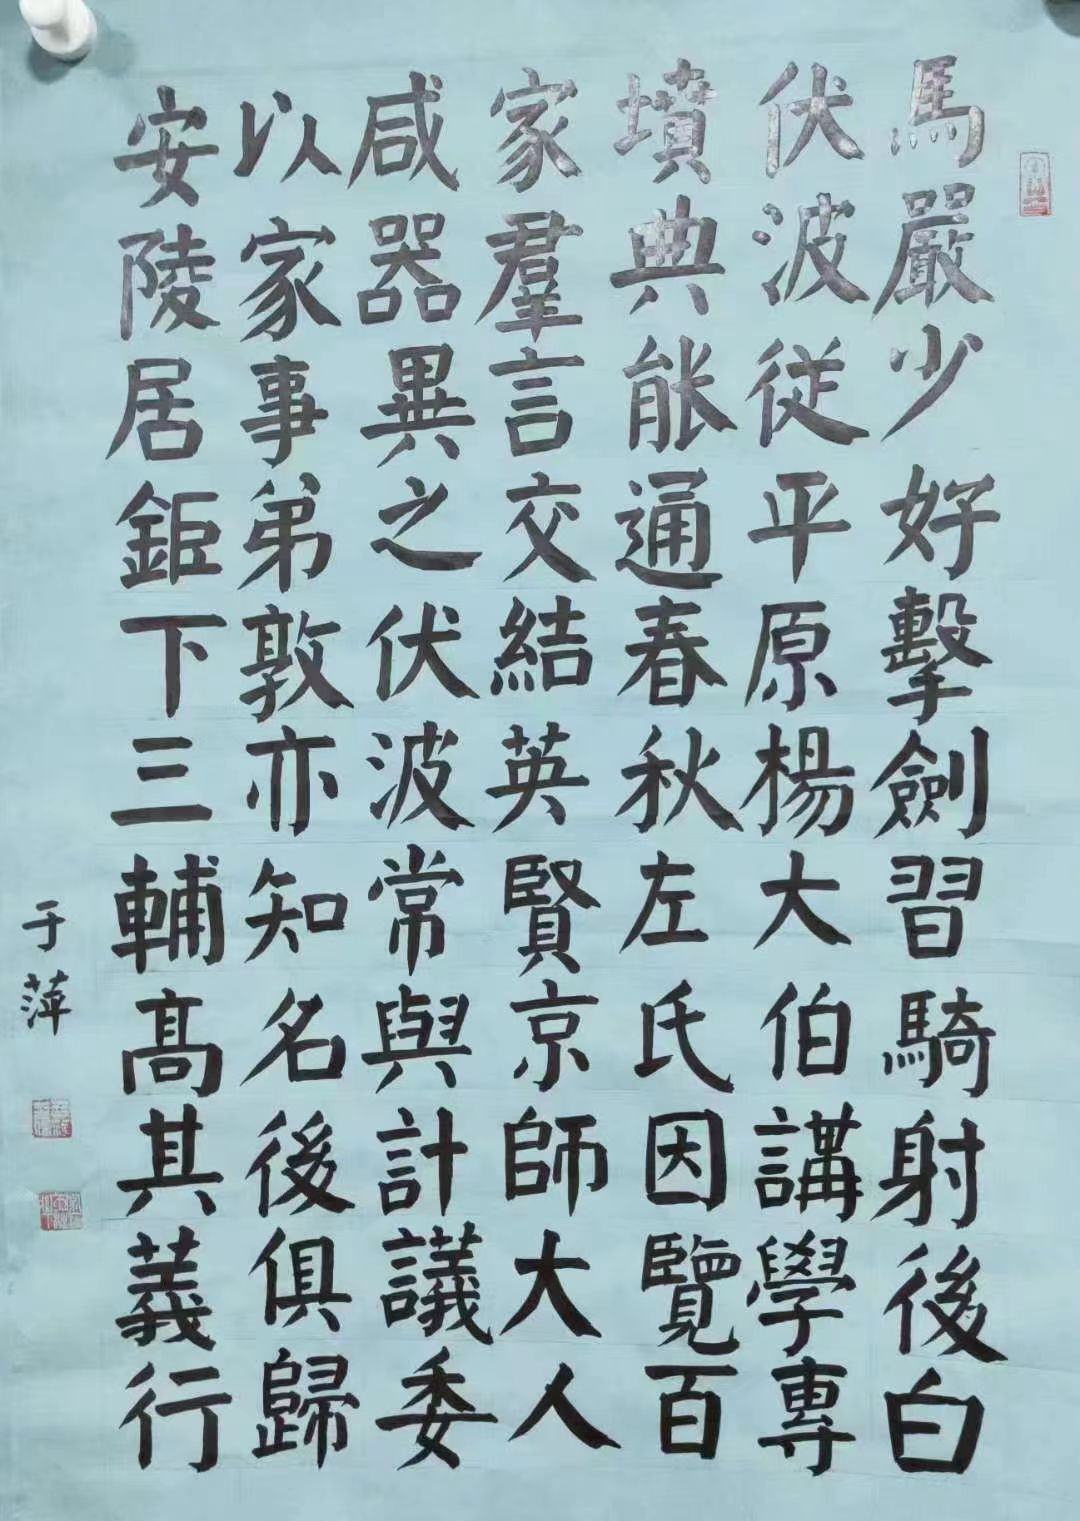 馬嚴少好擊劍習騎射後白
伏波従平原楊大伯講學專
墳典能通春秋左氏因覽百
家羣言交結英賢京師大人
咸器異之伏波常與計議委
以家事弟敦亦知名後俱歸
安陵居鉅下三輔髙其義行
于萍